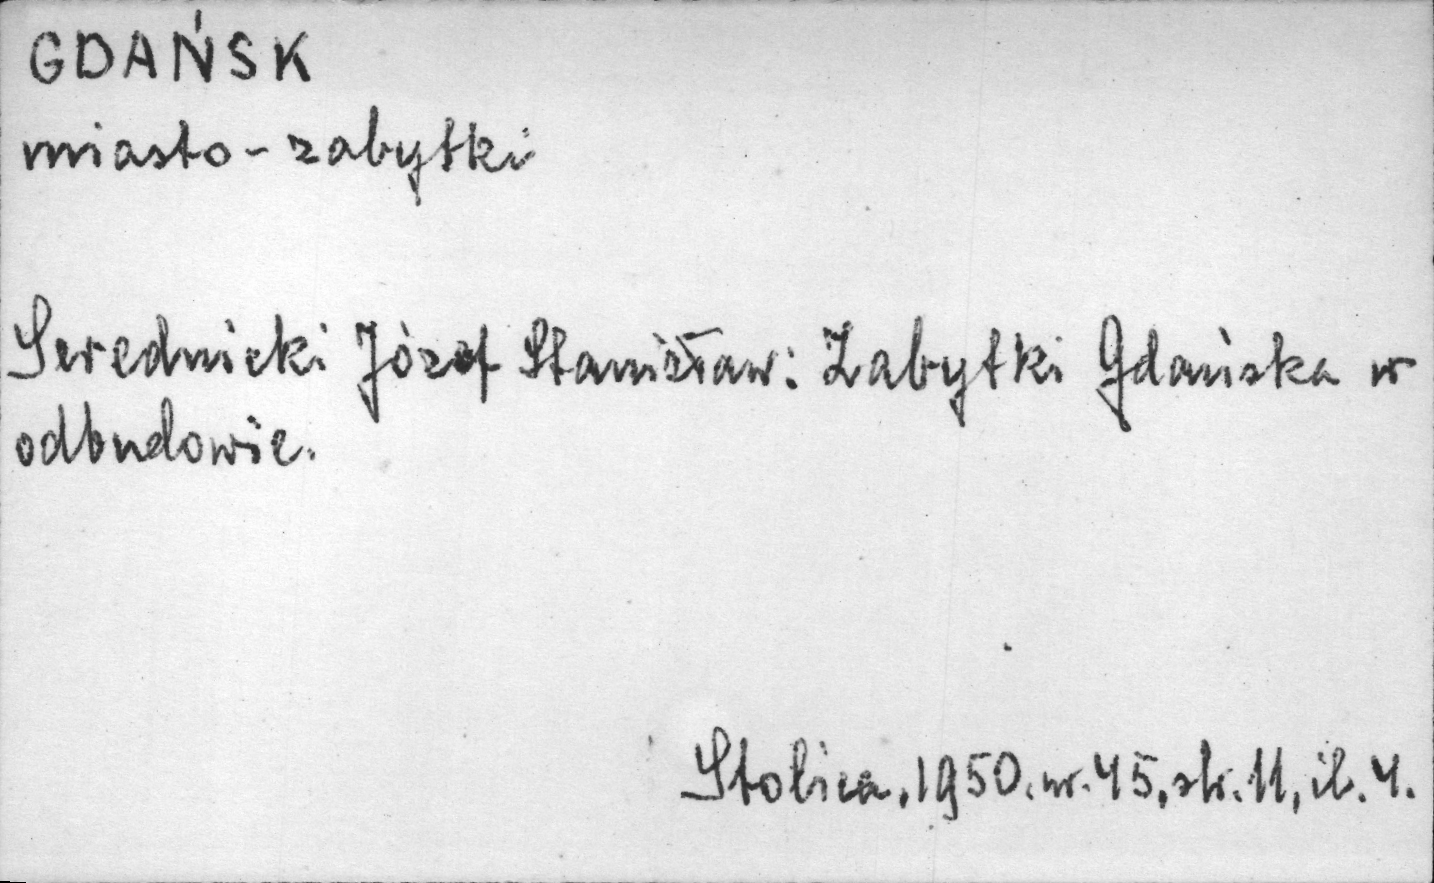 GDAŃSK
miasto - zabytki
Serednicki Józef Stanisław: Zabytki Gdańska w
odbudowie.
Stolica, 1950. nr. 45, str. 11, il. 4.